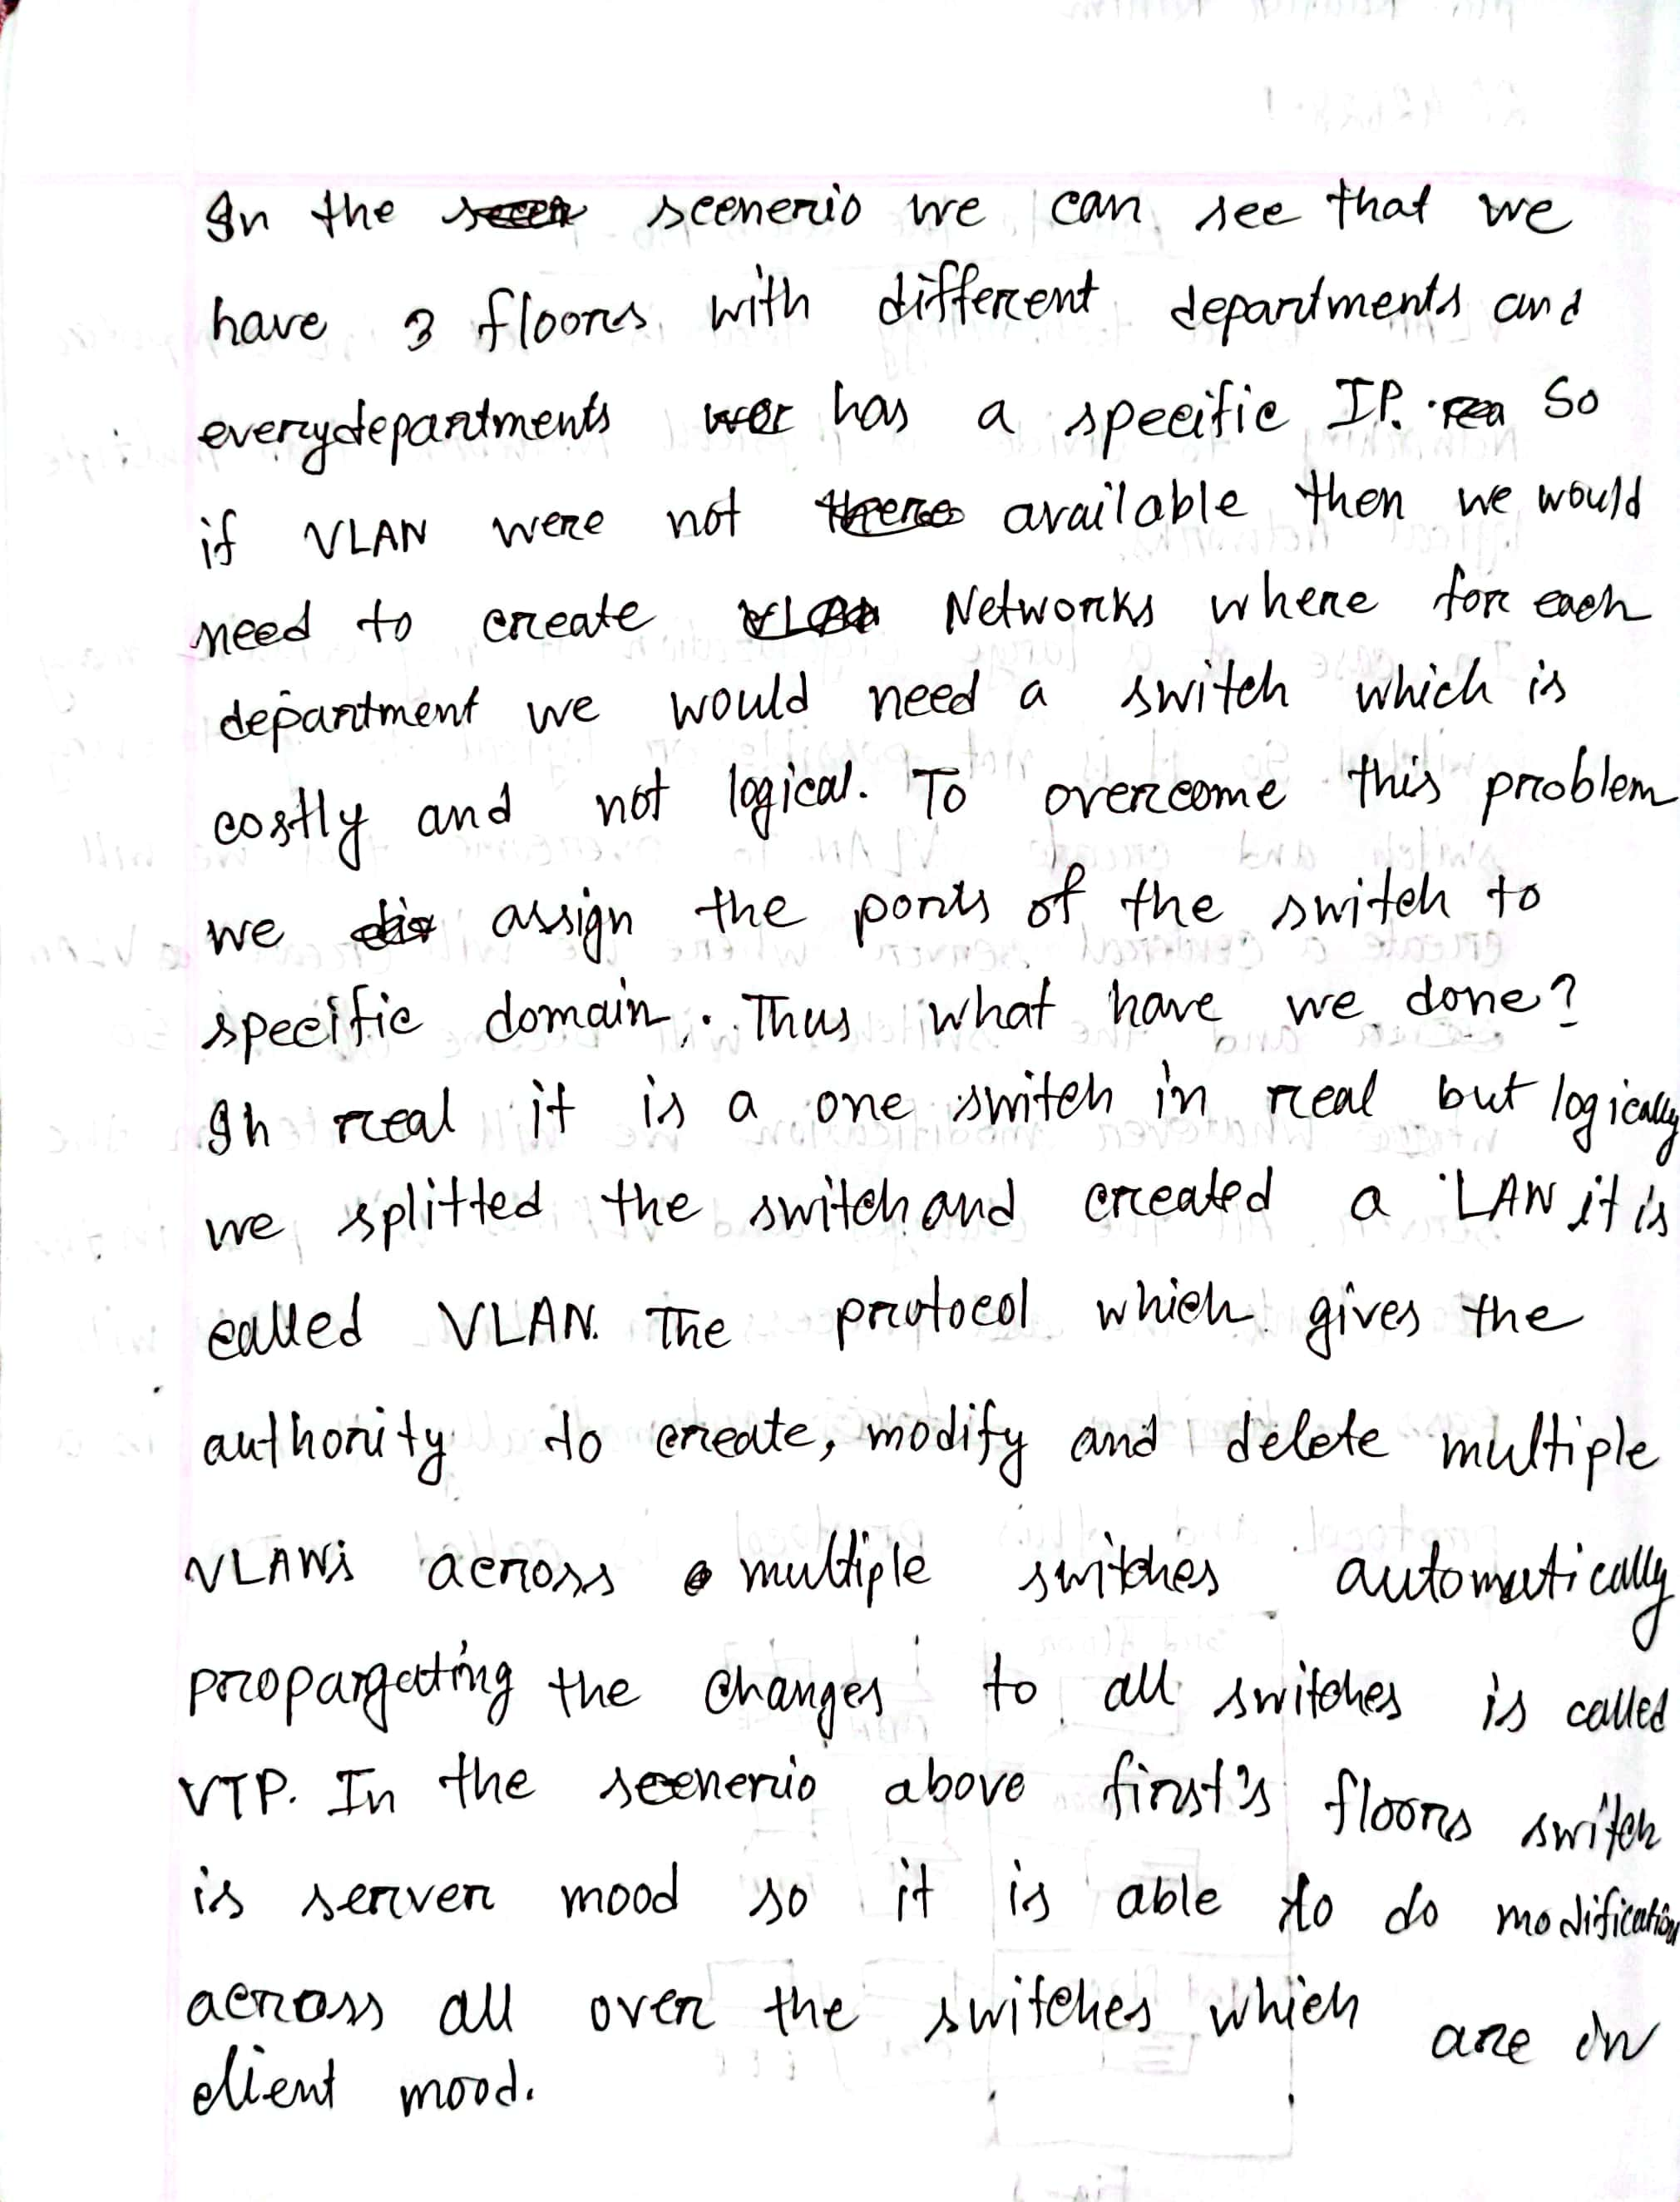 In the scenerio we can see that we
have 3 floors with different departments and
everydepartments has a specific IP. So
if VLAN were not available then we would
need to create Networks where for each
department we would need a switch which is
costly and not logical. To overcome this problem
we assign the ports of the switch to
specific domain. Thus what have we done?
In real it is a one switch in real but logically
we splitted the switch and created a LAN it is
called VLAN. The protocol which gives the
authority to create, modify and delete multiple
VLANs across multiple switches automatically
propargating the changes to all switches is called
VTP. In the scenerio above first's floors switch
is server mood so it is able to do modification
across all over the switches which are in
client mood.